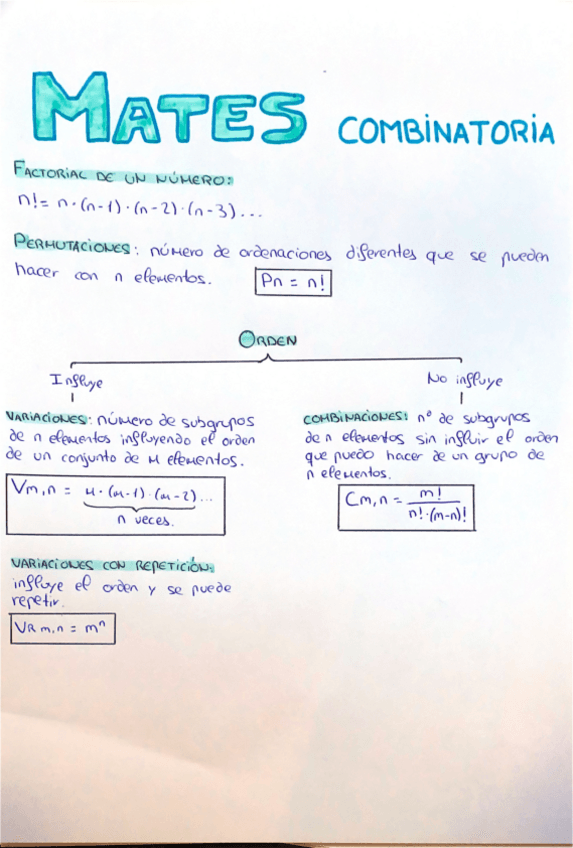 MATES COMBINATORIA
FACTORIAL DE UN NÚMERO:
n! = n·(n-1)·(n-2)·(n-3)...
PERMUTACIONES: número de ordenaciones diferentes que se pueden
hacer con n elementos. Pn = n!
ORDEN
Influye
No influye
VARIACIONES: número de subgrupos
de n elementos influyendo el orden
de un conjunto de m elementos.
Vm,n = m·(m-1)·(m-2)...
n veces.
COMBINACIONES: nº de subgrupos
de n elementos sin influir el orden
que puedo hacer de un grupo de
n elementos.
Cm,n = m! / n!·(m-n)!
VARIACIONES CON REPETICIÓN:
influye el orden y se puede
repetir.
VR m,n = mⁿ